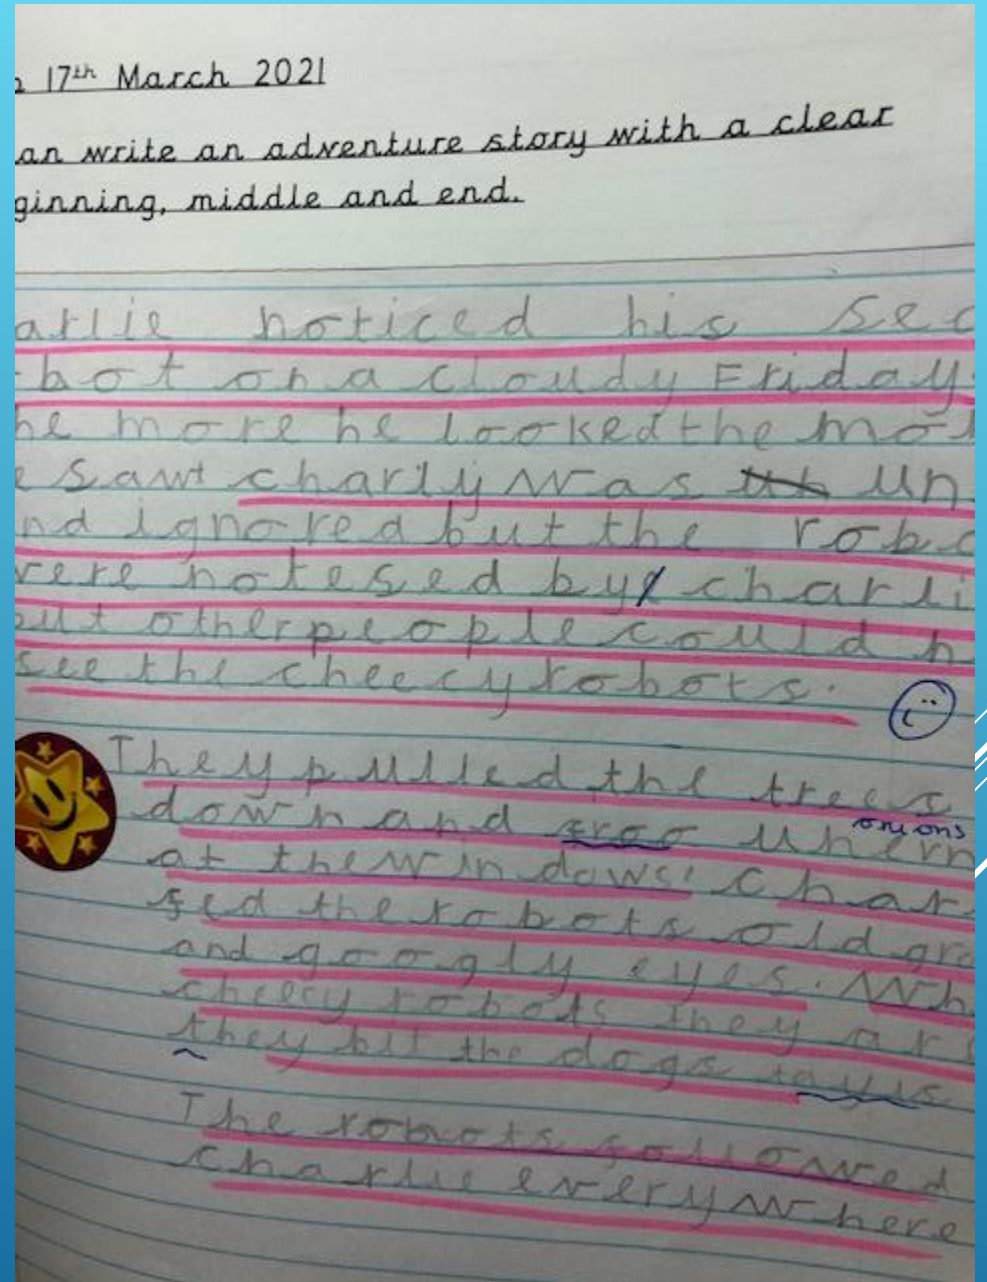 17th March 2021
an write an adventure story with a clear
ginning, middle and end.
arlie noticed his sec
bot on a cloudy Friday.
he more he looked the mor
e saw charly was un
nd ignored but the robo
were notesed by charli
but other people could n
see the cheecy robots.
They pulled the trees
down and
onions
at the windows! Char
fed the robots old gra
and googly eyes. Wh
cheecy robots they ar
they bit the dogs tayis
The robots followed
charlie everywhere